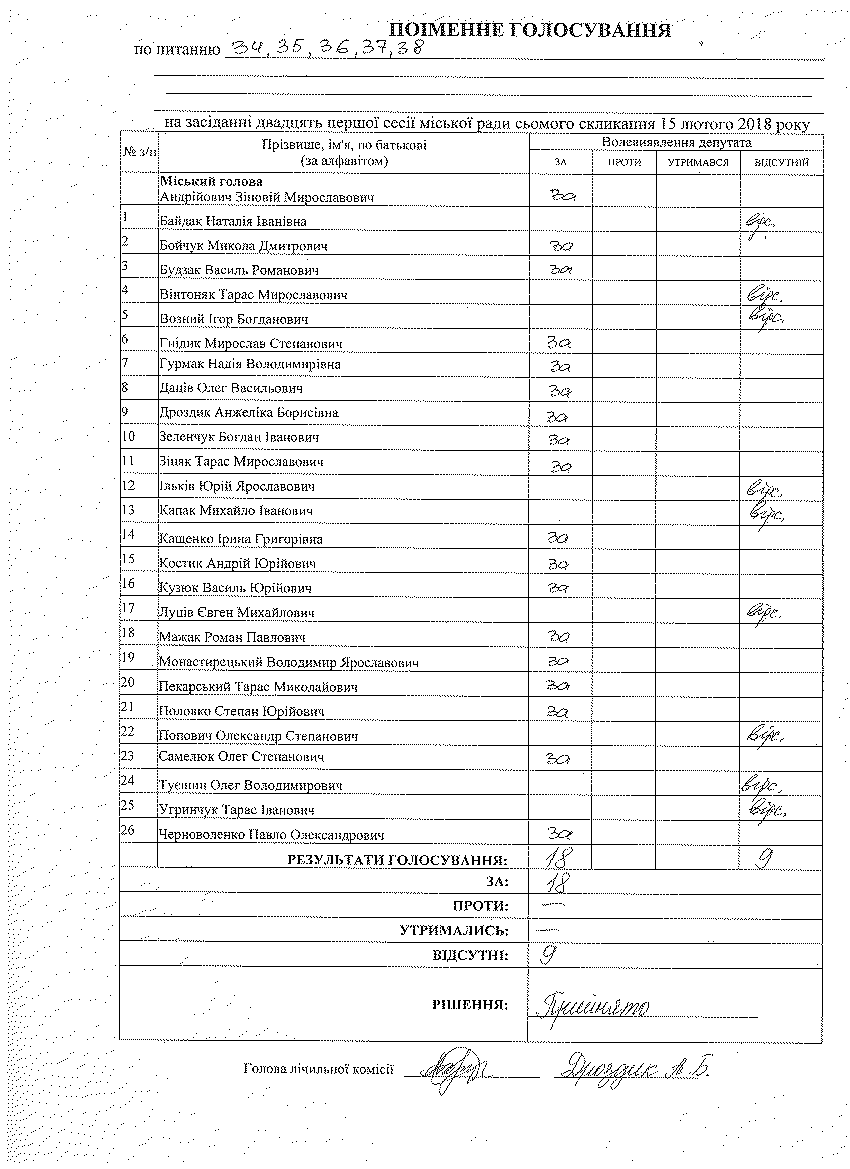 ПОІМЕННЕ ГОЛОСУВАННЯ
по питанню 34, 35, 36, 37, 38
на засіданні двадцять першої сесії міської ради сьомого скликання 15 лютого 2018 року
№ з/п Прізвище, ім'я, по батькові (за алфавітом) Волевиявлення депутата
ЗА ПРОТИ УТРИМАВСЯ ВІДСУТНІЙ
Міський голова
Андрійович Зіновій Мирославович за
1 Байдак Наталія Іванівна відс.
2 Бойчук Микола Дмитрович за
3 Будзак Василь Романович за
4 Вінтоняк Тарас Мирославович відс.
5 Возний Ігор Богданович відс.
6 Гнідик Мирослав Степанович за
7 Гурмак Надія Володимирівна за
8 Даців Олег Васильович за
9 Дроздик Анжеліка Борисівна за
10 Зеленчук Богдан Іванович за
11 Зіняк Тарас Мирославович за
12 Ільків Юрій Ярославович відс.
13 Капак Михайло Іванович відс.
14 Кащенко Ірина Григорівна за
15 Костик Андрій Юрійович за
16 Кузюк Василь Юрійович за
17 Луців Євген Михайлович відс.
18 Мажак Роман Павлович за
19 Монастирецький Володимир Ярославович за
20 Пекарський Тарас Миколайович за
21 Половко Степан Юрійович за
22 Попович Олександр Степанович відс.
23 Самелюк Олег Степанович за
24 Туєшин Олег Володимирович відс.
25 Угринчук Тарас Іванович відс.
26 Черноволенко Павло Олександрович за
РЕЗУЛЬТАТИ ГОЛОСУВАННЯ: 18 9
ЗА: 18
ПРОТИ: —
УТРИМАЛИСЬ: —
ВІДСУТНІ: 9
РІШЕННЯ: Прийнято
Голова лічильної комісії Дроздик А. Б.